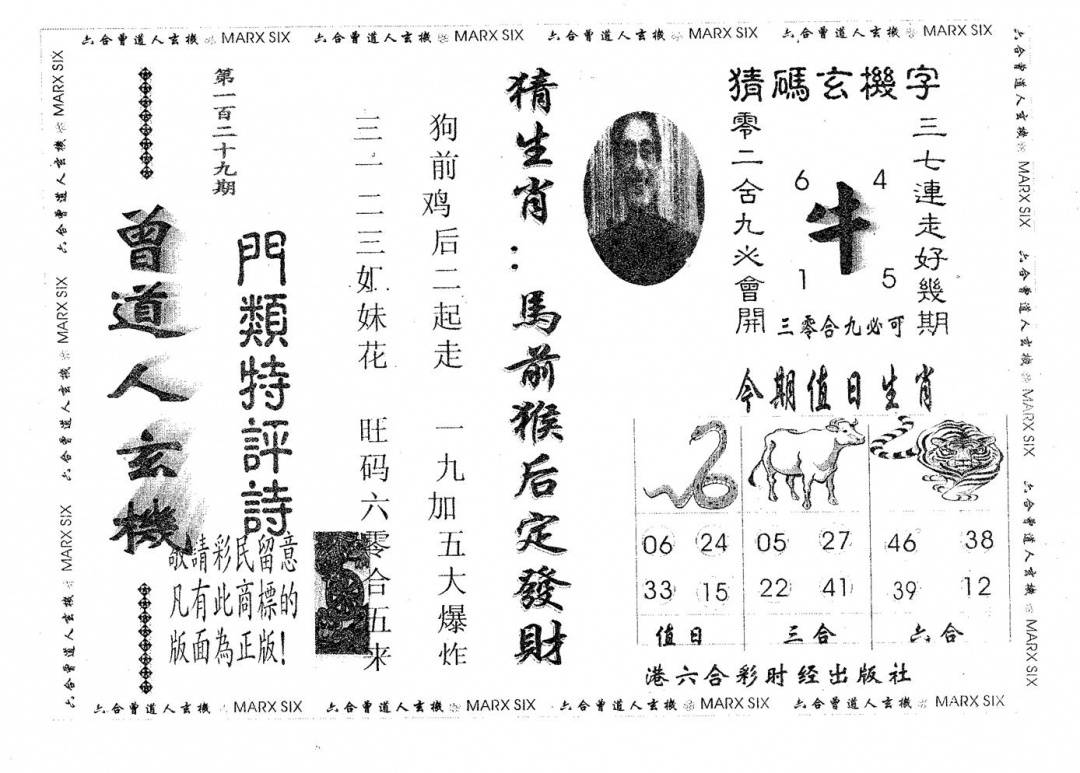 六合曾道人玄機 MARX SIX 六合曾道人玄機 MARX SIX 六合曾道人玄機 MARX SIX 六合曾道人玄機 MARX SIX
六合曾道人玄機 MARX SIX 六合曾道人玄機 MARX SIX 六合曾道人玄機 MARX SIX
猜碼玄機字
三七連走好幾期
6 4
牛
1 5
三零合九必可
零二舍九必會開
今期值日生肖
06 24 05 27 46 38
33 15 22 41 39 12
值日 三合 六合
港六合彩时经出版社
猜生肖：馬前猴后定發財
狗前鸡后二起走 一九加五大爆炸
三一二三姊妹花 旺码六零合五来
門類特評詩
第一百二十九期
曾道人玄機
敬請彩民留意
凡有此商標的
版面為正版!
六合曾道人玄機 MARX SIX 六合曾道人玄機 MARX SIX 六合曾道人玄機 MARX SIX
六合曾道人玄機 MARX SIX 六合曾道人玄機 MARX SIX 六合曾道人玄機 MARX SIX 六合曾道人玄機 MARX SIX